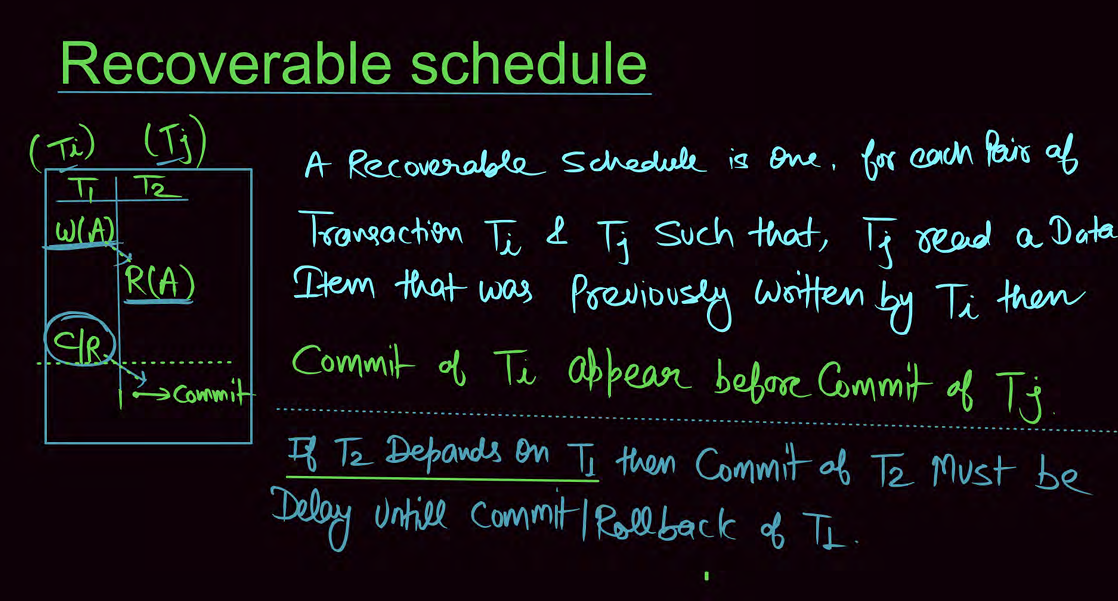 Recoverable schedule
(Ti) (Tj)
T1 T2
W(A)
R(A)
C/R
Commit
A Recoverable Schedule is one, for each Pair of
Transaction Ti & Tj Such that, Tj read a Data
Item that was Previously written by Ti then
Commit of Ti appear before Commit of Tj.
If T2 Depands on T1 then Commit of T2 Must be
Delay untill Commit/Rollback of T1.